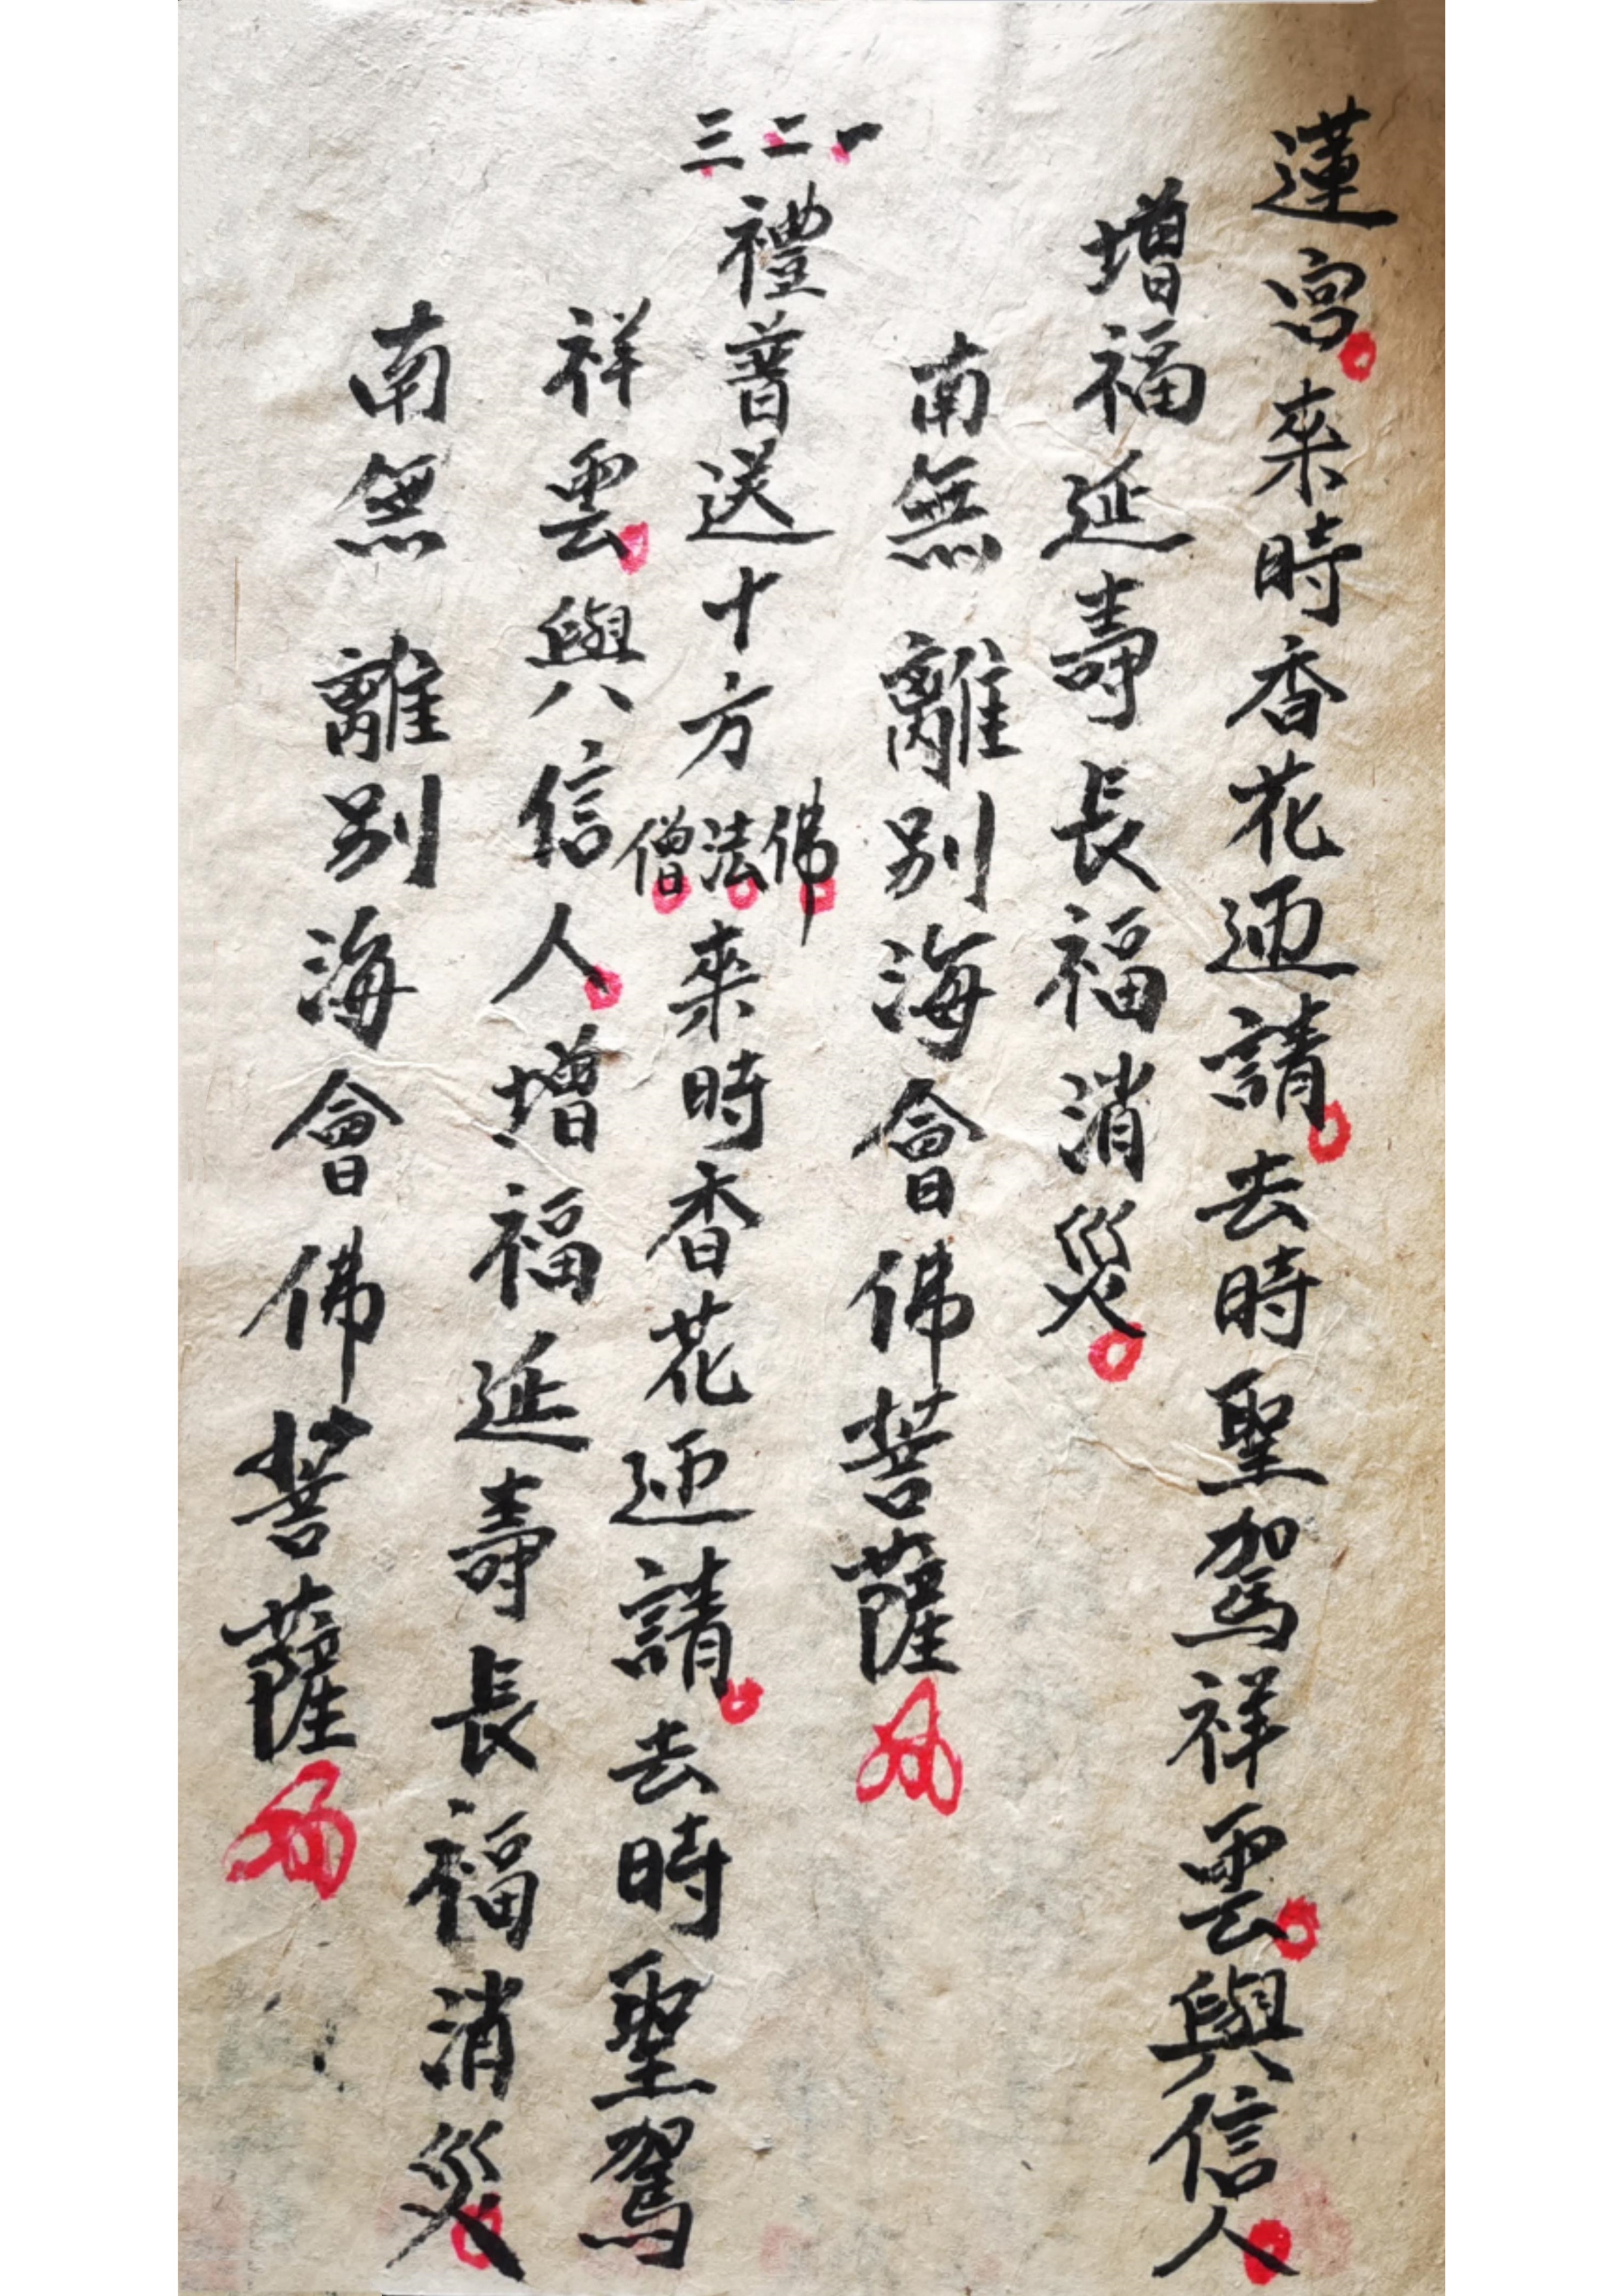 蓮宮來時香花迊請去時聖駕祥雲與信人
增福延壽長福消災
南無離別海會佛菩薩
一二三禮普送十方佛法僧來時香花迊請去時聖駕
祥雲與信人增福延壽長福消災
南無離別海會佛菩薩